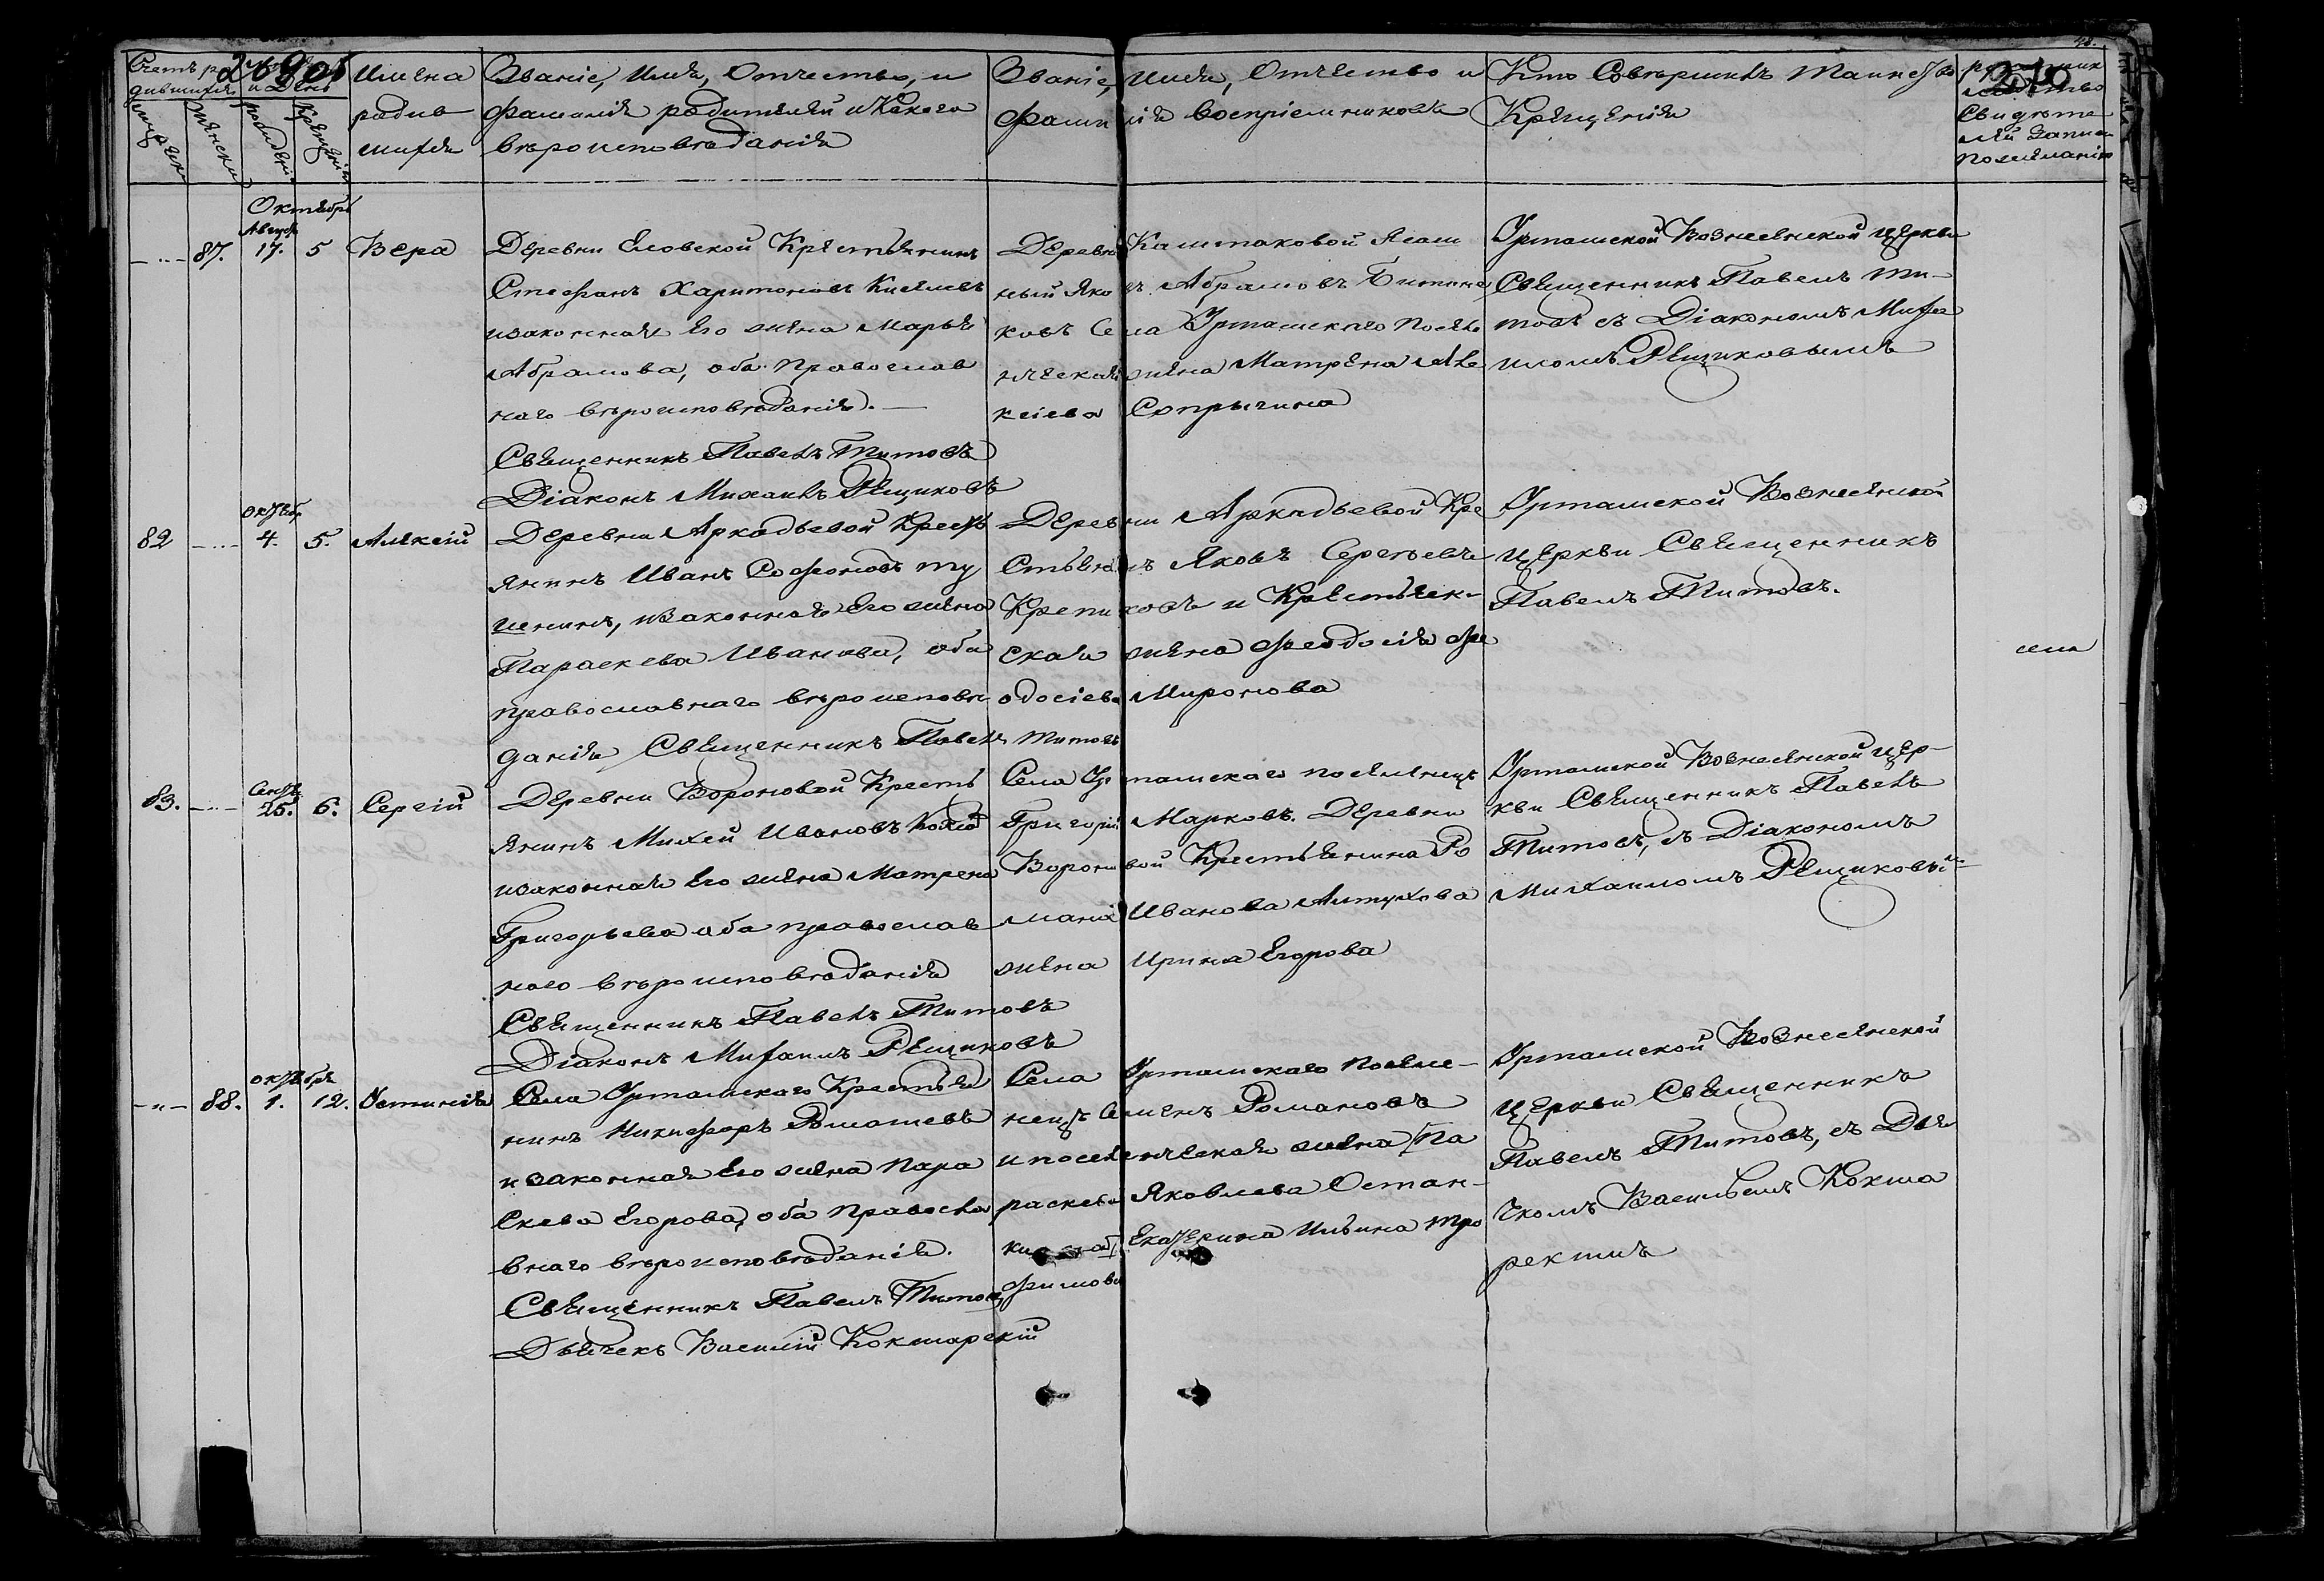 48.
Счетъ ро
дившихся
Мужеска
Женска
2690б
и День
рожденія
Крещенія
Имена
родив
шихся
Званіе, Имя, Отчество, и
фамилія родителей и Какого
вѣроисповѣданія
Званіе, имя, Отчество и
Фамилія воспріемниковъ
Кто Совершилъ Таинство
Крещенія
270
Свидѣте
лей запис
по желанію
Октябрь
Август
87. 17. 5 Вера
Деревни Еловской Крестьянинъ
Стефанъ Харитоновъ Киселевъ
и законная Его жена Марья
Абрамова, оба Православ
наго вѣроисповѣданія.
Священникъ Павелъ Титовъ
Діаконъ Михаилъ Рещиковъ
Деревни Каштаковой Ясаш
ный Яковъ Абрамовъ
ковъ Села Урташскаго Поселе
нческая жена Матрена Але
ксіева Сопрыгина
Урташской Вознесенской церкви
Священникъ Павелъ Ти-
товъ съ Діакономъ Миха
иломъ Рещиковымъ
октябр
82 4. 5. Алексій
Деревни Аркадьевой Крест
янинъ Иванъ Софоновъ Ту
, и законная Его жена
Параскева Иванова, оба
православнаго вѣроисповѣ
данія Священникъ Павелъ Титовъ
Деревни Аркадьевой Кре
стьянинъ Яковъ Сергѣевъ
Крепиковъ и Крестьянс-
ская жена Феодосія Фе
одосіева Миронова
Урташской Вознесенской
Церкви Священникъ
Павелъ Титовъ.
Сентяб
83. 25. 6. Сергій
Деревни Вороновой Кресть
янинъ Михей Ивановъ
и законная Его жена Матрена
Григорьева оба православ
наго вѣроисповѣданія
Священникъ Павелъ Титовъ
Діаконъ Михаилъ Рещиковъ
Села Урташскаго поселенецъ
Григорій Марковъ. Деревни
Вороновой Крестьянина Ро
мана Иванова Алтухова
жена Ирина Егорова
Урташской Вознесенской Цер-
кви Священникъ Павелъ
Титовъ, съ Діакономъ
Михаиломъ Рещиковым
октября
88. 1. 12. Устинія
Села Урташскаго Крестья
нинъ Никифоръ Ромашевъ
и законная Его жена Пара
скева Егорова, оба Правосла
внаго вѣроисповѣданія.
Священникъ Павелъ Титов
Дьячекъ Василій Кокшарскій
Села Урташскаго Поселе-
нецъ Семенъ Романовъ
и поселенческая жена Па
раскева Яковлева Остан-
Екатерина Ильина Тро
фимова
Урташской Вознесенской
Церкви Священникъ
Павелъ Титовъ, съ Дья
чкомъ Васильемъ Кокша